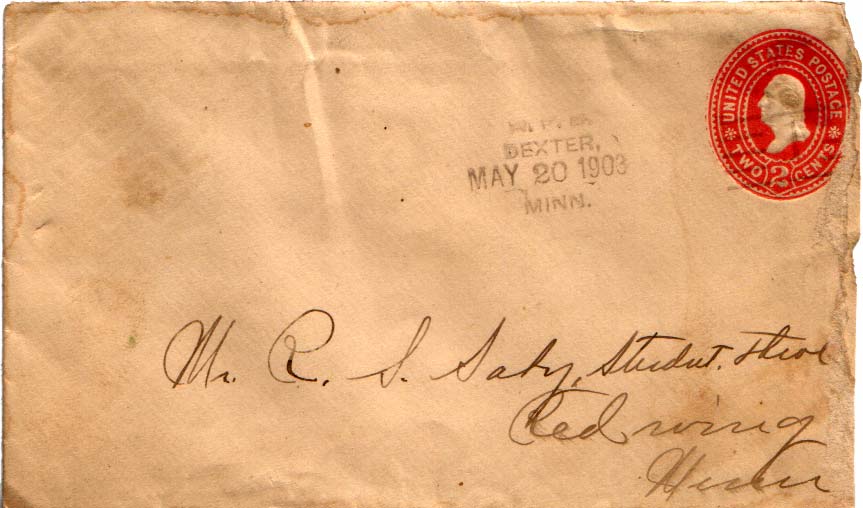 UNITED STATES POSTAGE
TWO 2 CENTS
DEXTER,
MAY 20 1903
MINN.
Mr. R. S. Saby, Student. Theol
Red wing
Minn